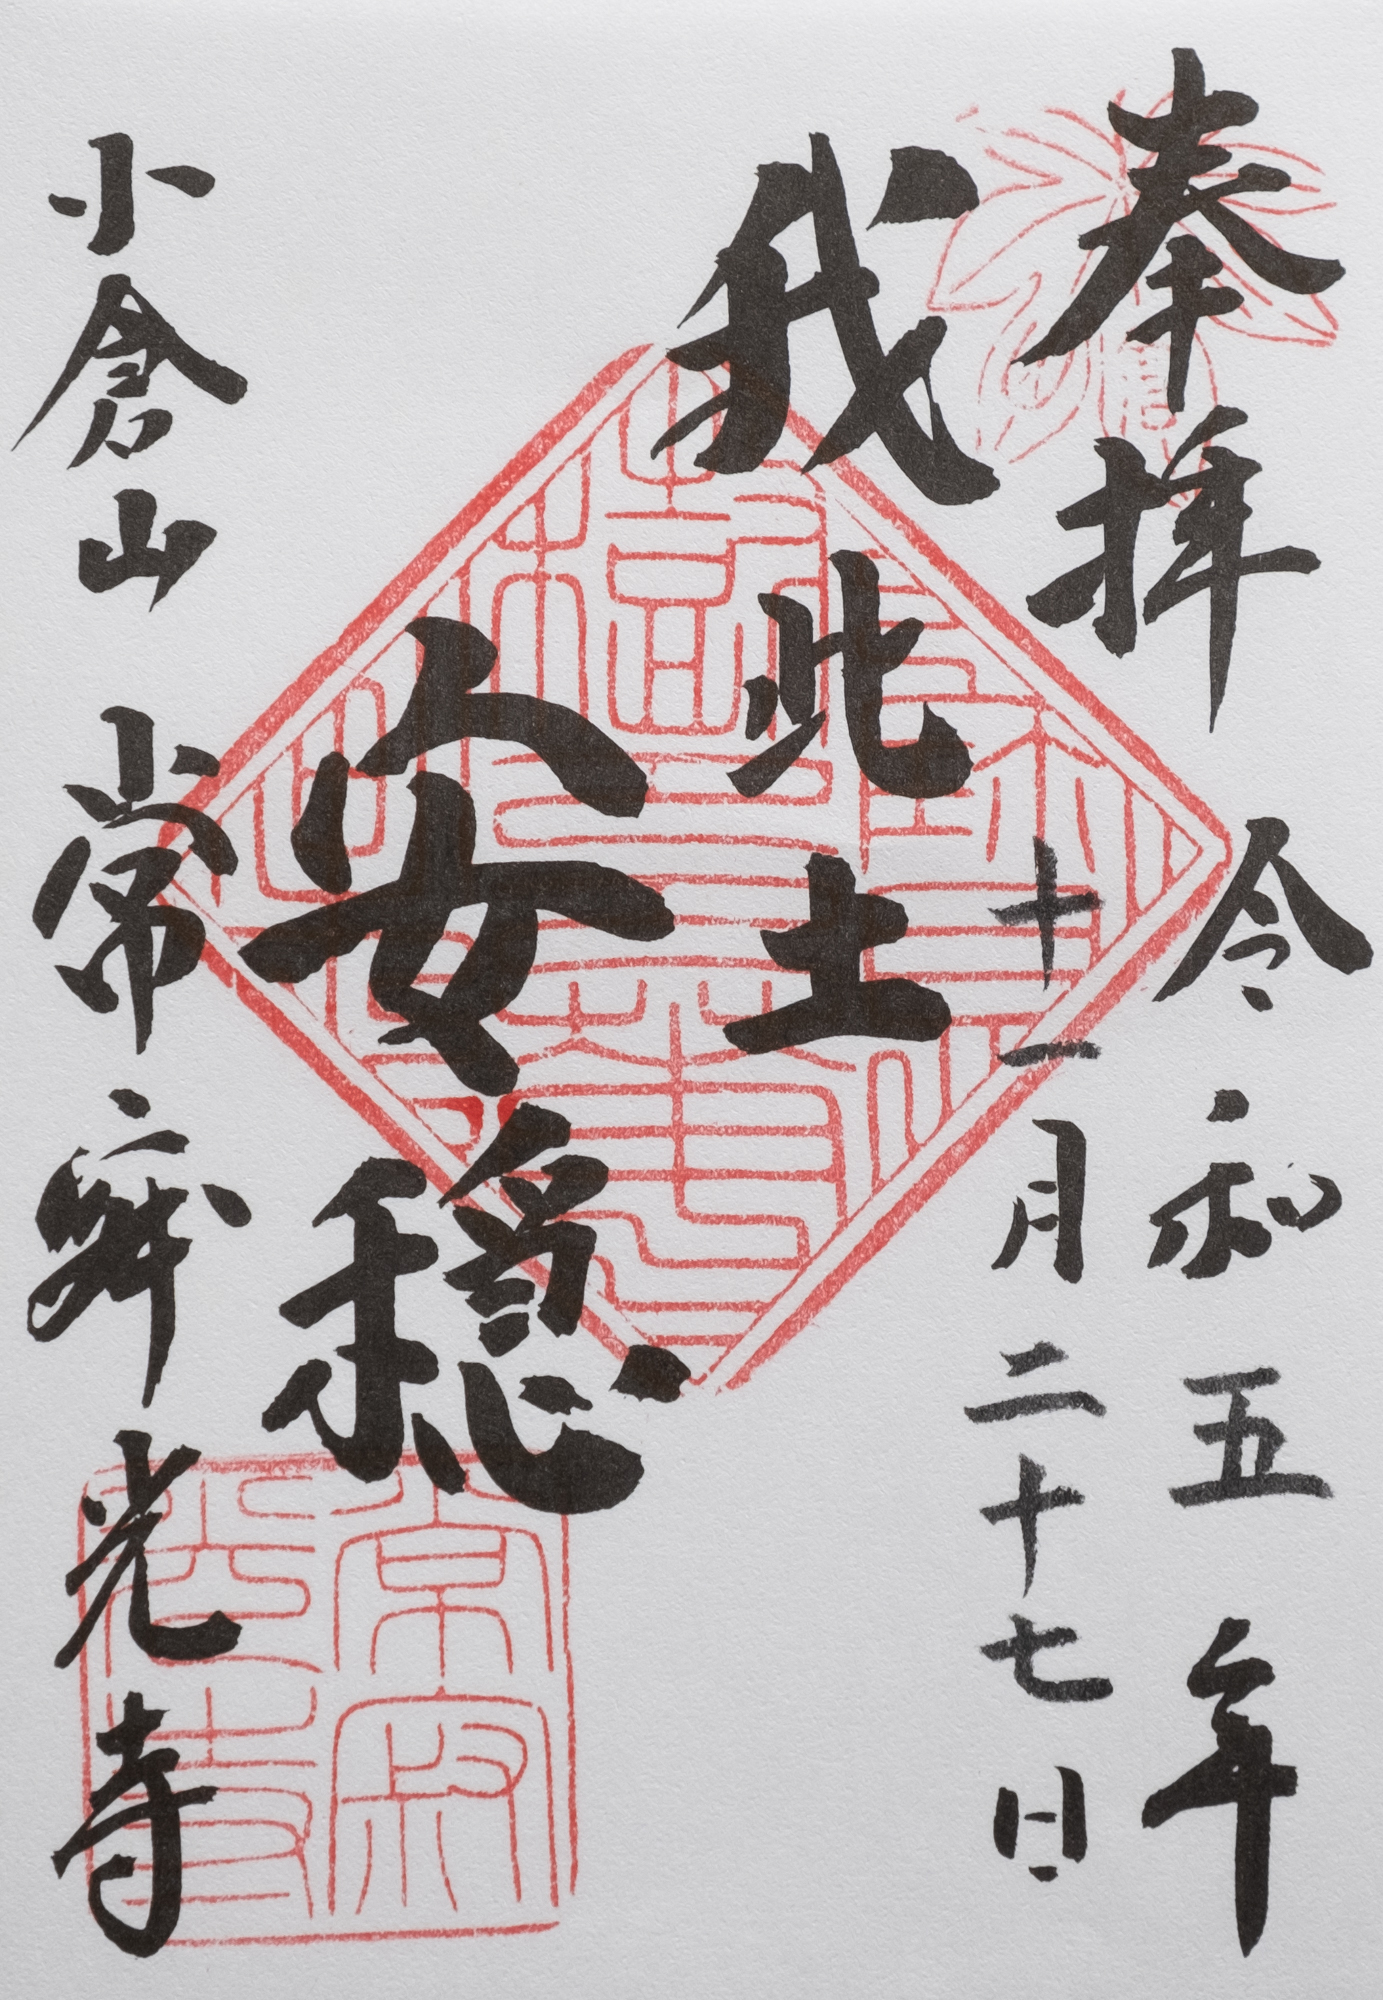 奉拝
令和五年
十一月二十七日
我此土
安穏
小倉山
常寂光寺